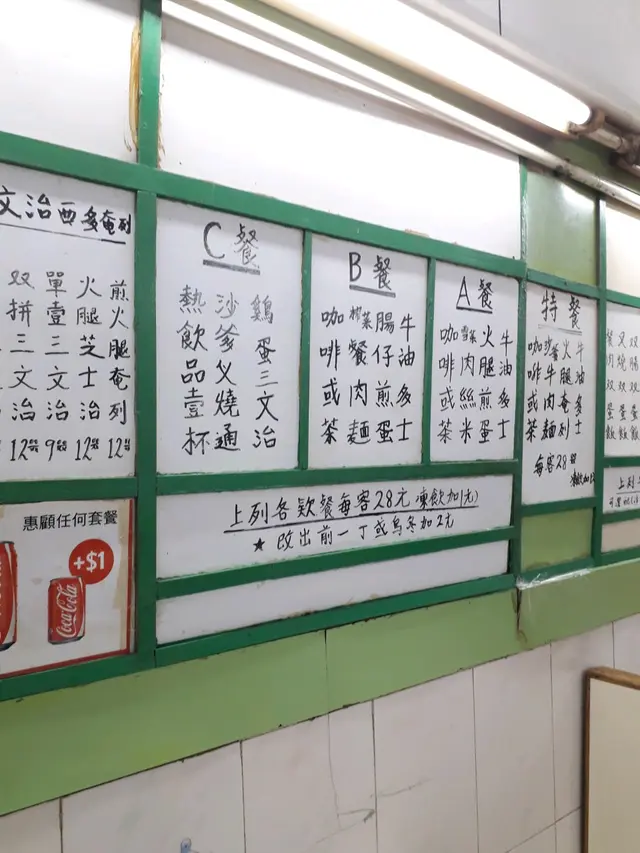 文治西多奄列
煎火腿奄列12
火腿芝士治12
單壹三文治9
双拼三文治12
惠顧任何套餐
+$1
Coca-Cola
C餐
雞蛋三文治
沙爹叉燒通
熱飲品壹杯
B餐
牛油多士
腸仔煎蛋
榨菜餐肉麵
咖啡或茶
A餐
牛油多士
火腿煎蛋
雪菜肉絲米
咖啡或茶
上列各欵餐每客28元 凍飲加1元)
★ 改出前一丁或烏冬加2元
特餐
牛油多士
火腿奄列
沙爹牛肉麵
咖啡或茶
每客28
凍飲加
双腸双蛋飯
叉燒双蛋飯
餐肉双蛋飯
上列